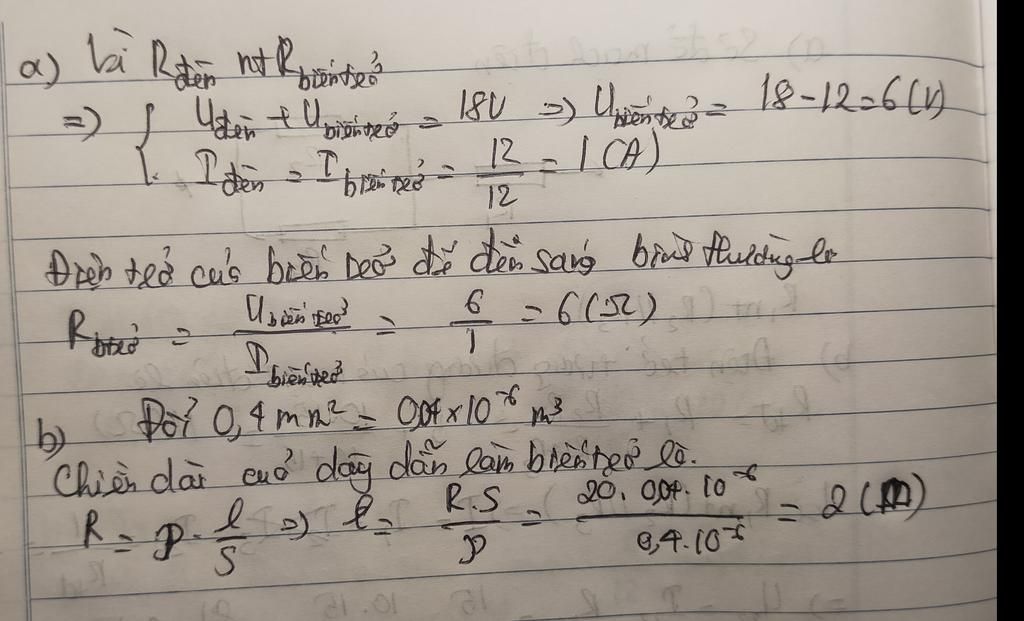 a) Vì R đèn nt R biến trở
=> { U đèn + U biến trở = 18V => U biến trở = 18 - 12 = 6 (V)
I đèn = I biến trở = 12/12 = 1 (A)
Điện trở của biến trở để đèn sáng bình thường là
R b trở = U biến trở / I biến trở = 6/1 = 6 (Ω)
b) Đổi 0,4 mm² = 0,04 × 10⁻⁶ m³
Chiều dài cuả dây dẫn làm biến trở là.
R = ρ · l/S => l = R.S/ρ = 20 . 0,04 . 10⁻⁶ / 0,4 . 10⁻⁶ = 2 (m)